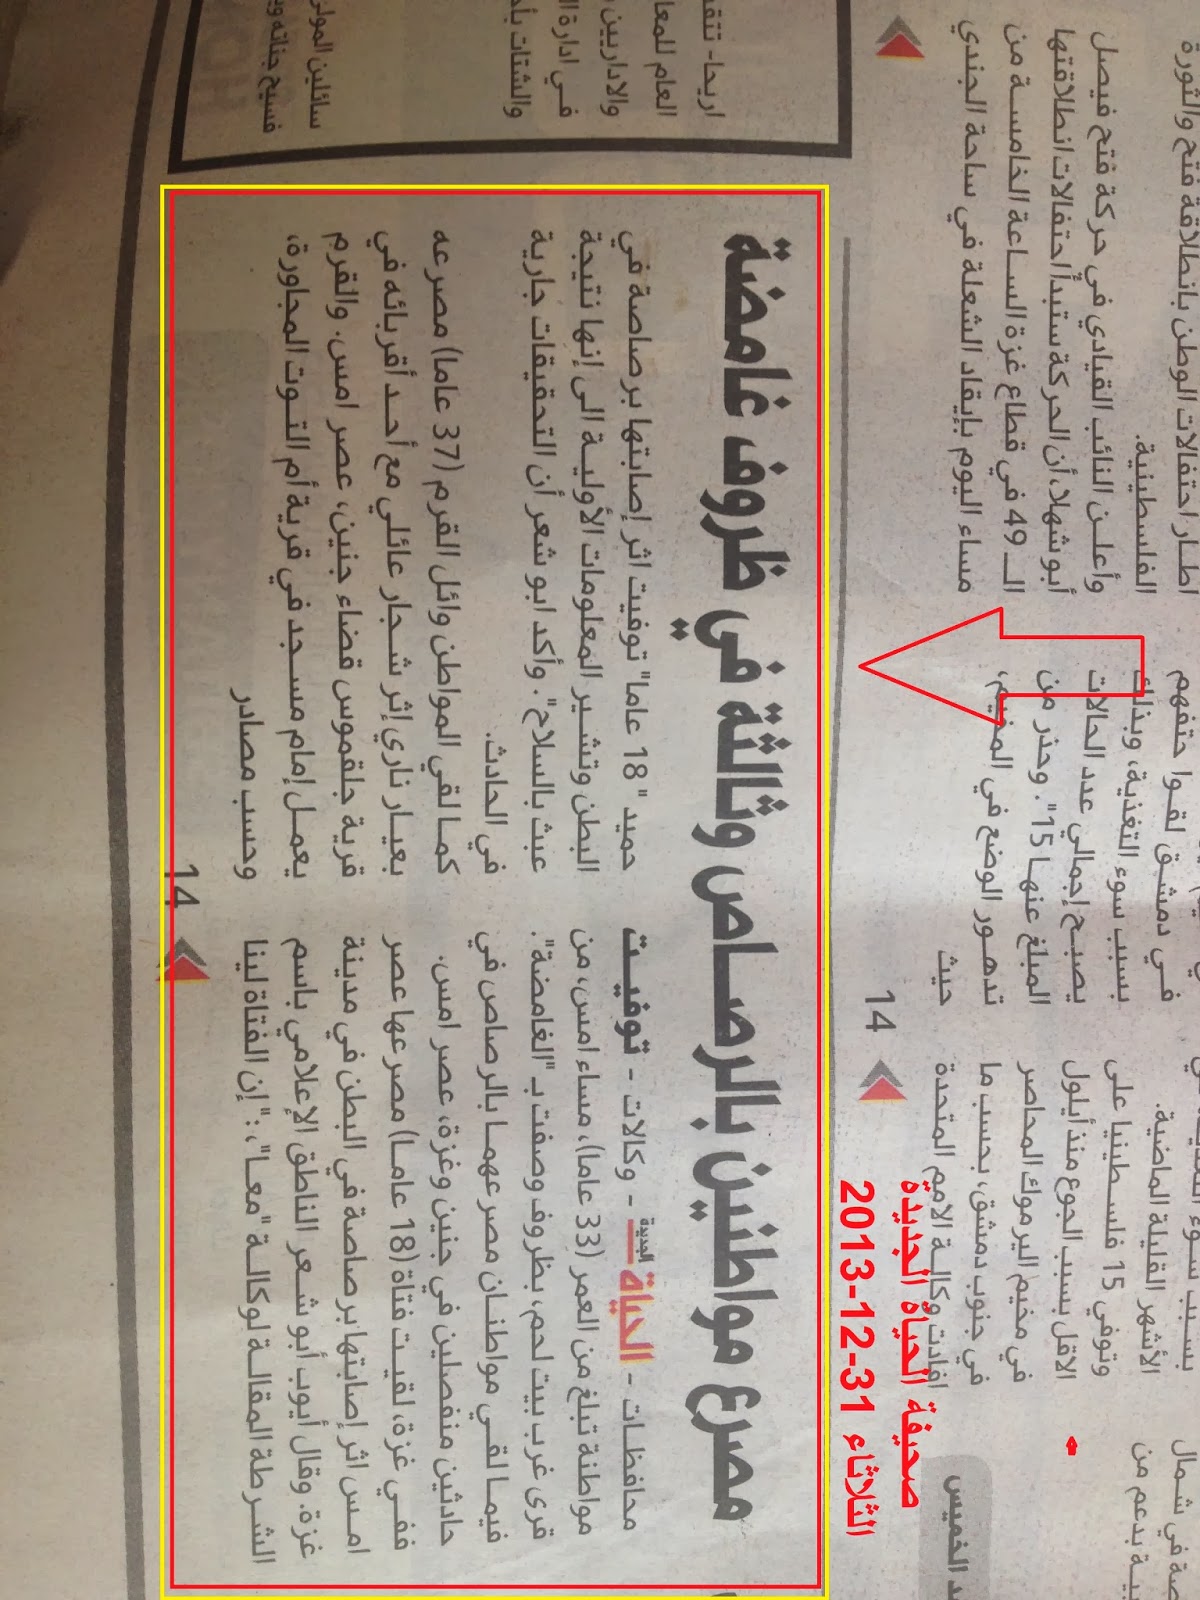 اطار احتفالات الوطن بانطلاقة فتح والثورة
الفلسطينية.
وأعلن النائب القيادي في حركة فتح فيصل
أبو شهلا، أن الحركة ستبدأ احتفالات انطلاقتها
الـ 49 في قطاع غزة الساعة الخامسة من
مساء اليوم بإيقاد الشعلة في ساحة الجندي
حتفهم
في دمشق لقوا
بسبب سوء التغذية، وبذلك
يصبح إجمالي عدد الحالات
المبلغ عنها 15". وحذر من
تدهور الوضع في المخيم،
حيث
14
الأشهر القليلة الماضية.
وتوفي 15 فلسطينيا على
الاقل بسبب الجوع منذ أيلول
في مخيم اليرموك المحاصر
في جنوب دمشق، بحسب ما
افادت وكالة الامم المتحدة
في شمال
بدعم من
الخميس
صحيفة الحياة الجديدة
الثلاثاء 31-12-2013
مصرع مواطنين بالرصاص وثالثة في ظروف غامضة
محافظات - الحياة الجديدة - وكالات - توفيت
مواطنة تبلغ من العمر (33 عاما)، مساء امس، من
قرى غرب بيت لحم، بظروف وصفت بـ "الغامضة".
فيما لقي مواطنان مصرعهما بالرصاص في
حادثين منفصلين في جنين وغزة، عصر امس.
ففي غزة، لقيت فتاة (18 عاما) مصرعها عصر
امس اثر إصابتها برصاصة في البطن في مدينة
غزة. وقال أيوب أبو شعر الناطق الإعلامي باسم
الشرطة المقالة لوكالة "معا"، : "إن الفتاة لينا
حميد " 18 عاما" توفيت اثر إصابتها برصاصة في
البطن وتشير المعلومات الأولية الى إنها نتيجة
عبث بالسلاح". وأكد ابو شعر أن التحقيقات جارية
في الحادث.
كما لقي المواطن وائل القرم (37 عاما) مصرعه
بعيار ناري إثر شجار عائلي مع أحد أقربائه في
قرية جلقموس قضاء جنين، عصر امس. والقرم
يعمل إمام مسجد في قرية أم التوت المجاورة،
وحسب مصادر
14
اريحا- تتقد
العام للمعا
والاداريين
في ادارة ال
والشتات بأ
سائلين المولى
فسيح جناته وي